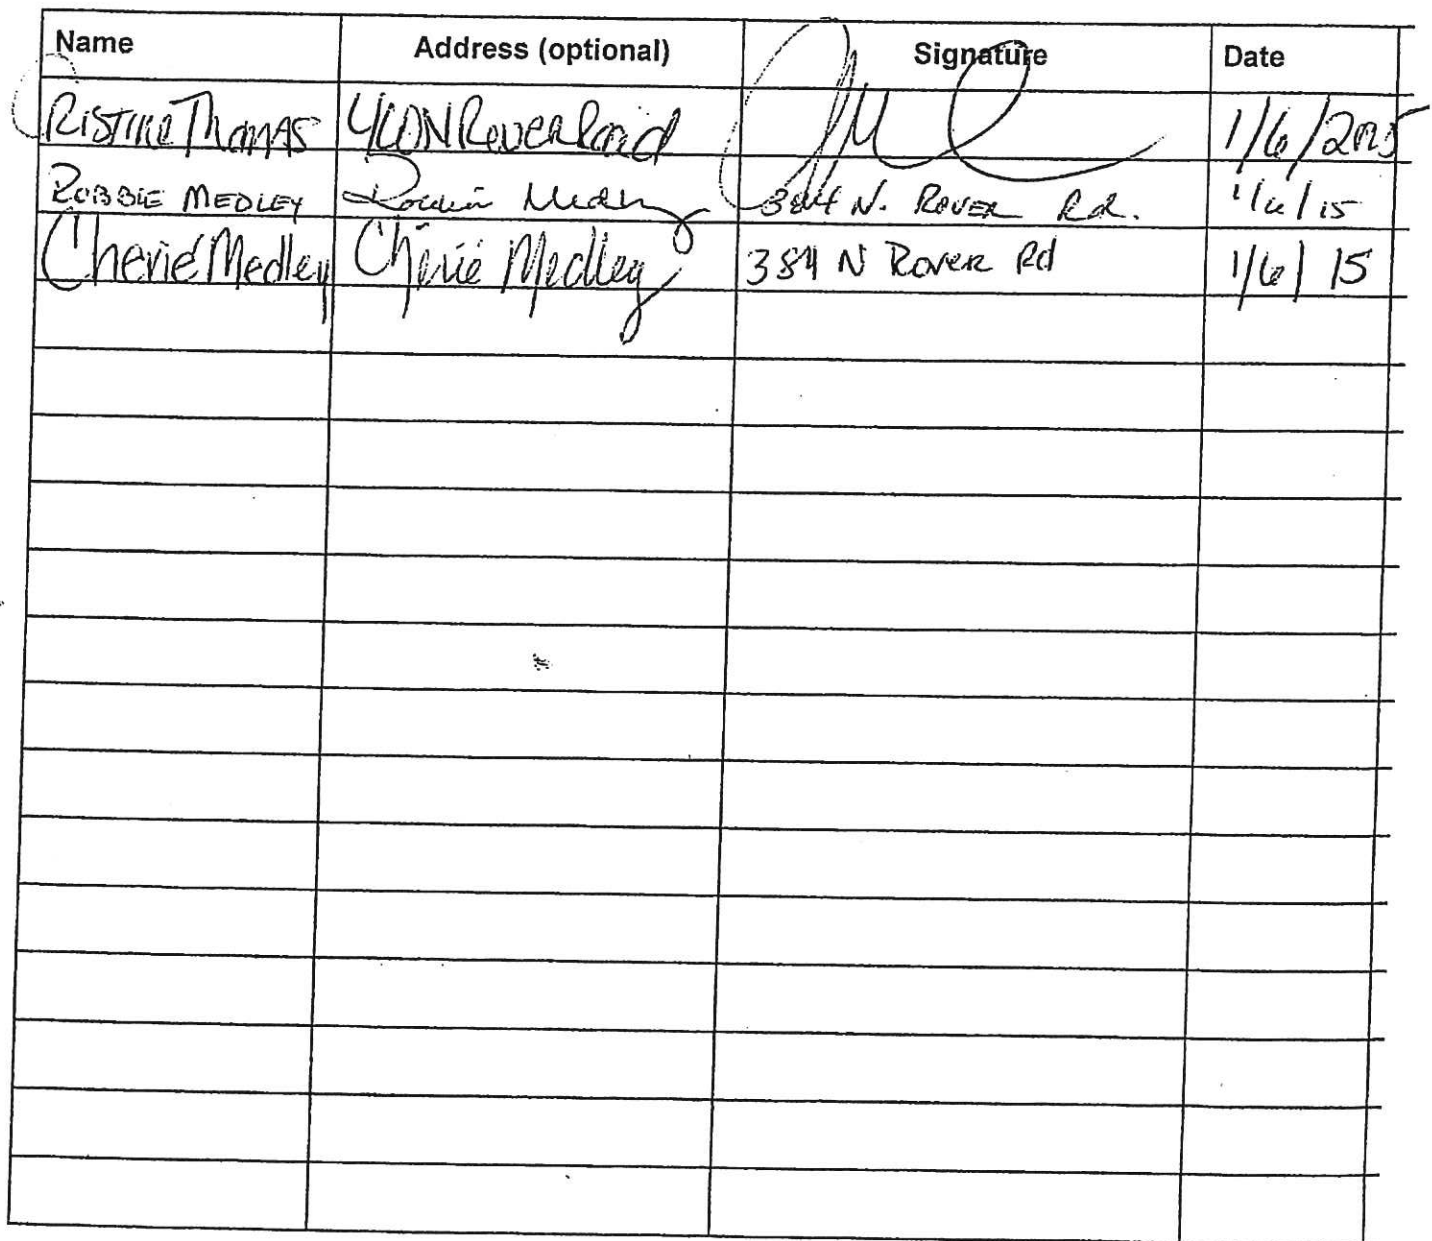 Name Address (optional) Signature Date
CRISTINE THOMAS N Rover Road 1/6/2015
ROBBIE MEDLEY Robbie Medley 384 N. ROVER Rd. 1/6/15
Cherie Medley Cherie Medley 384 N ROVER Rd 1/6/15